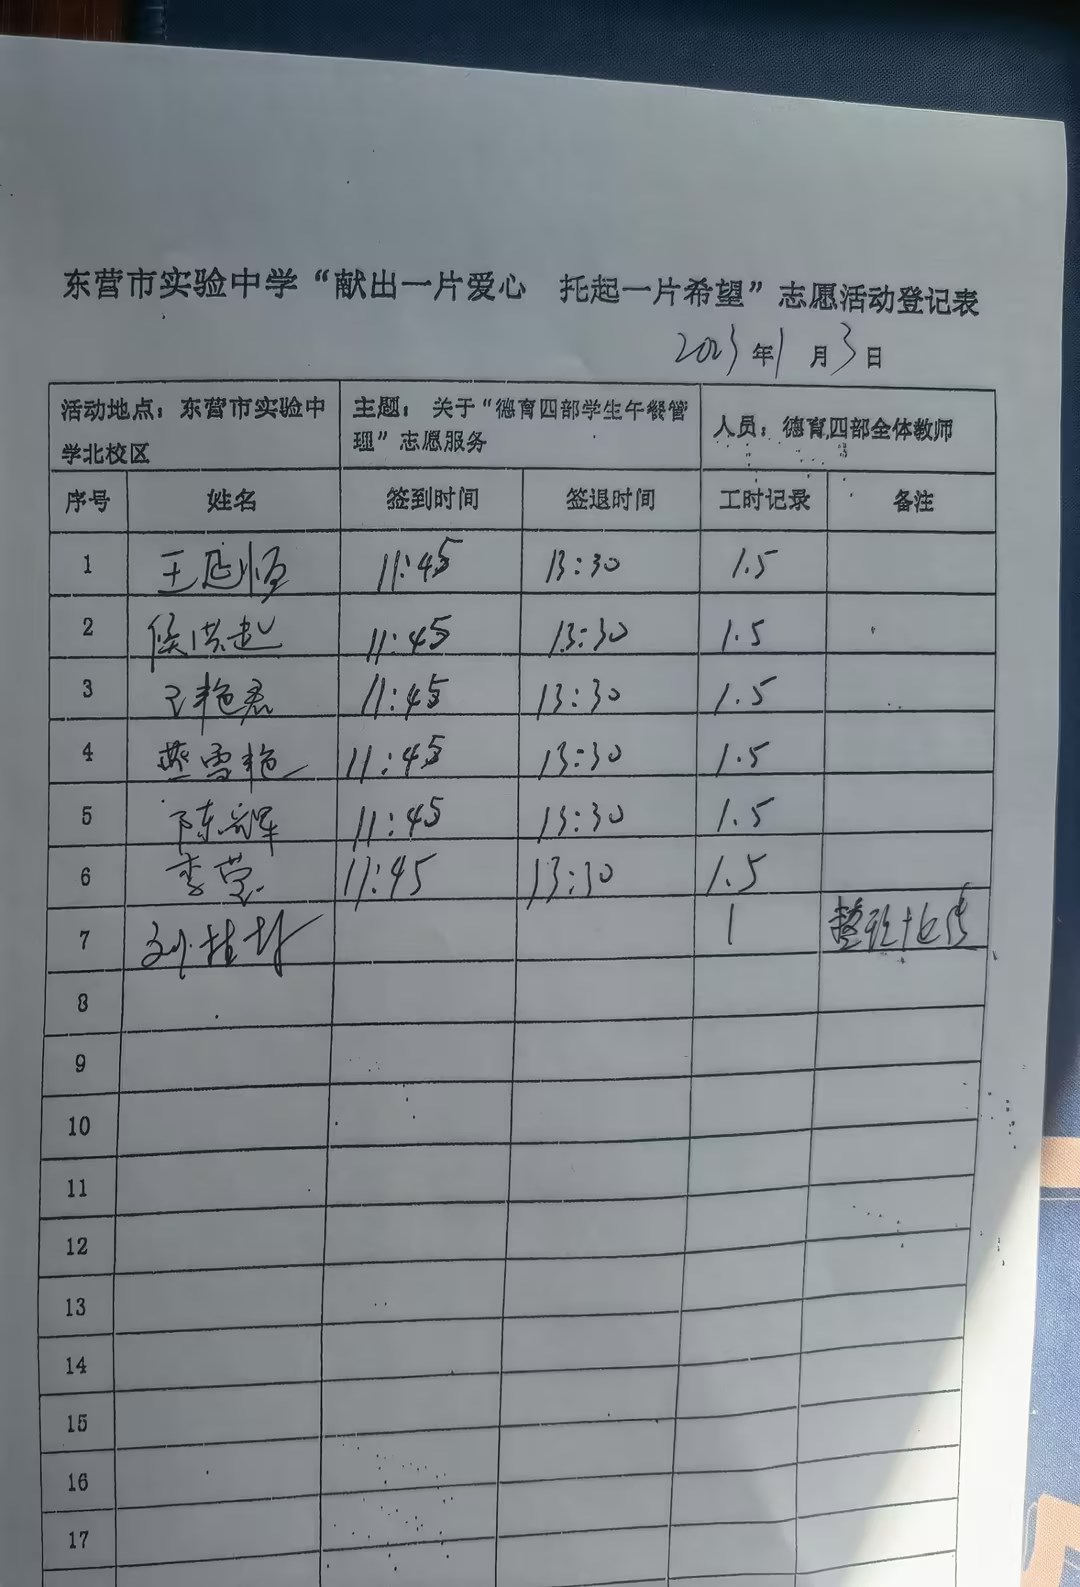 东营市实验中学“献出一片爱心 托起一片希望”志愿活动登记表
2023年1月3日
活动地点：东营市实验中学北校区 主题：关于“德育四部学生午餐管理”志愿服务 人员：德育四部全体教师
序号 姓名 签到时间 签退时间 工时记录 备注
1 王延恒 11:45 13:30 1.5
2 侯洪起 11:45 13:30 1.5
3 王艳君 11:45 13:30 1.5
4 燕雪艳 11:45 13:30 1.5
5 陈 11:45 13:30 1.5
6 李莹 11:45 13:30 1.5
7 刘桂 1 整理
8
9
10
11
12
13
14
15
16
17